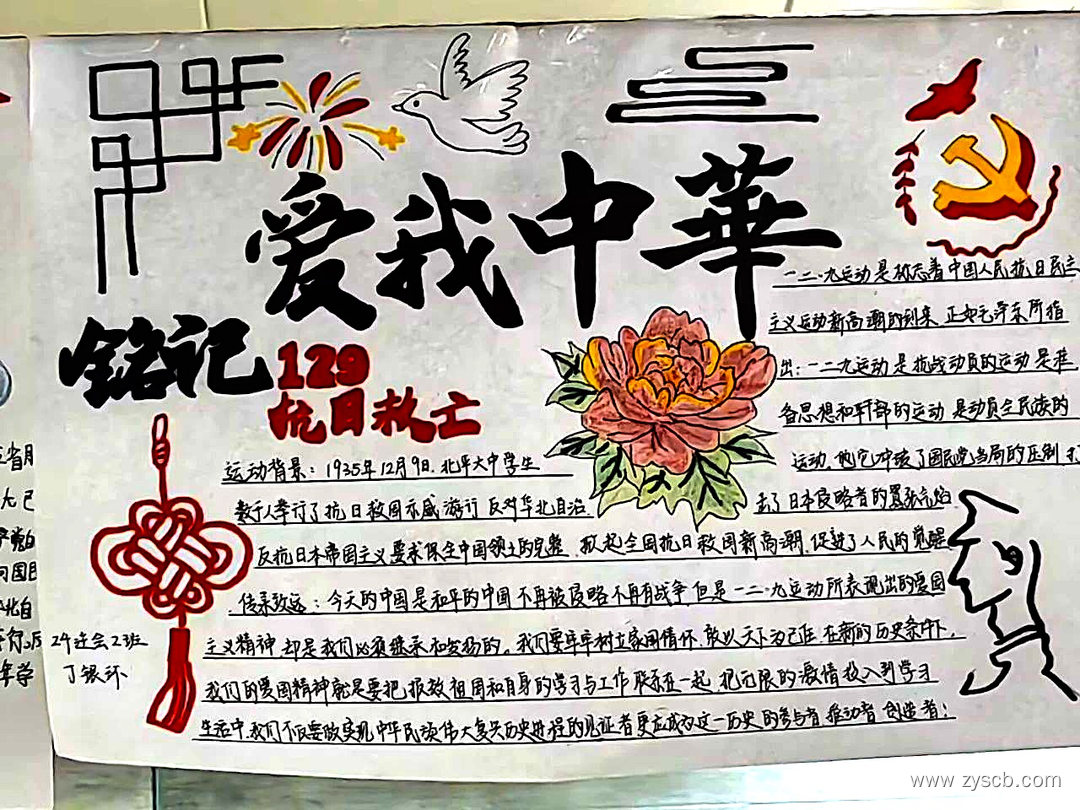 爱我中華
铭记
129
抗日救亡
一二·九运动是标志着中国人民抗日民主
主义运动新高潮的到来 正如毛泽东所指
出：一二九运动是抗战动员的运动 是准
备思想和干部的运动 是动员全民族的
运动 他它冲破了国民党当局的压制 打
击了日本侵略者的嚣张气焰
运动背景：1935年12月9日 北平大中学生
数千人举行了抗日救国示威游行 反对华北自治
反抗日本帝国主义 要求保全中国领土的完整 掀起全国抗日救国新高潮 促进了人民的觉醒
传承致远：今天的中国是和平的中国 不再被侵略 不再有战争 但是一二·九运动所表现出的爱国
主义精神 却是我们必须继承和发扬的。我们要牢牢树立家国情怀 敢以天下为己任 在新的历史条件下，
我们的爱国精神就是要把报效祖国和自身的学习与工作联系在一起 把无限的激情投入到学习
生活中 我们不仅要做实现中华民族伟大复兴历史进程的见证者 更应成为这一历史的参与者 推动者 创造者！
24 会2班
丁银环
www.zyscb.com